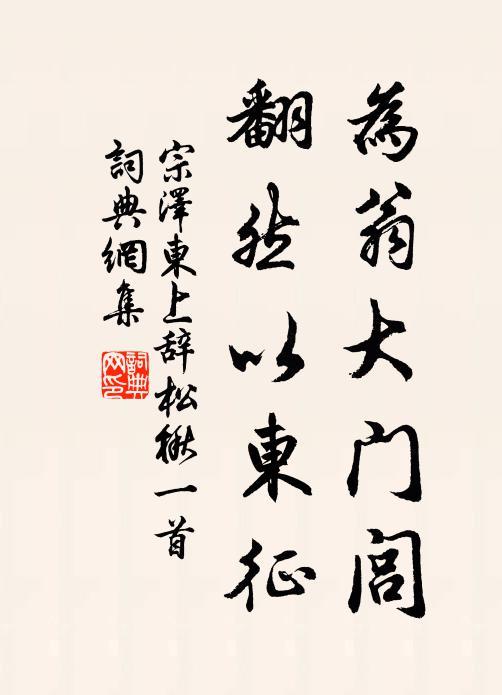 為翁大门闾
翻然以東征
宗澤東上辞松楸一首
詞典網集
詞典网印